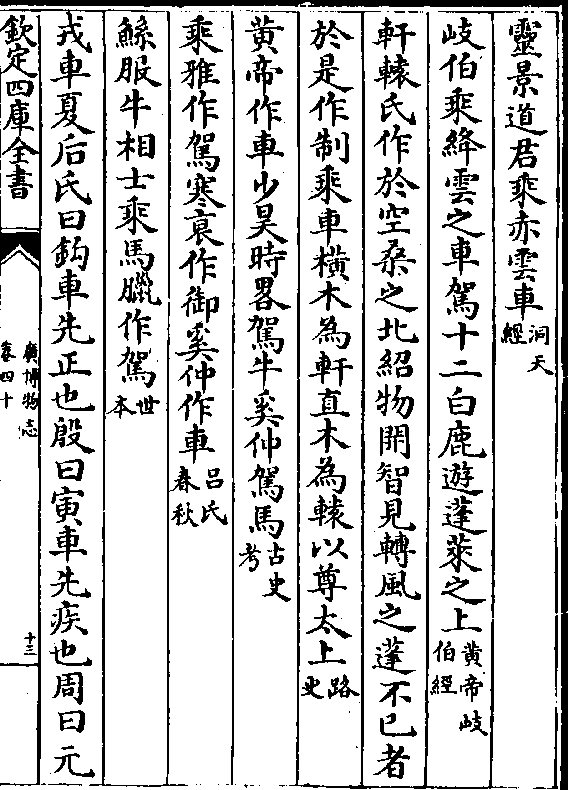 靈景道君乘赤雲車洞天經
岐伯乘絳雲之車駕十二白鹿遊蓬萊之上黃帝岐伯經
軒轅氏作於空桑之北紹物開智見轉風之蓬不已者
於是作制乘車橫木為軒直木為轅以尊太上路史
黃帝作車少昊時畧駕牛奚仲駕馬古史考
乘雅作駕寒哀作御奚仲作車呂氏春秋
鯀服牛相士乘馬臘作駕世本
戎車夏后氏曰鈎車先正也殷曰寅車先疾也周曰元
欽定四庫全書
廣博物志
卷四十
十三